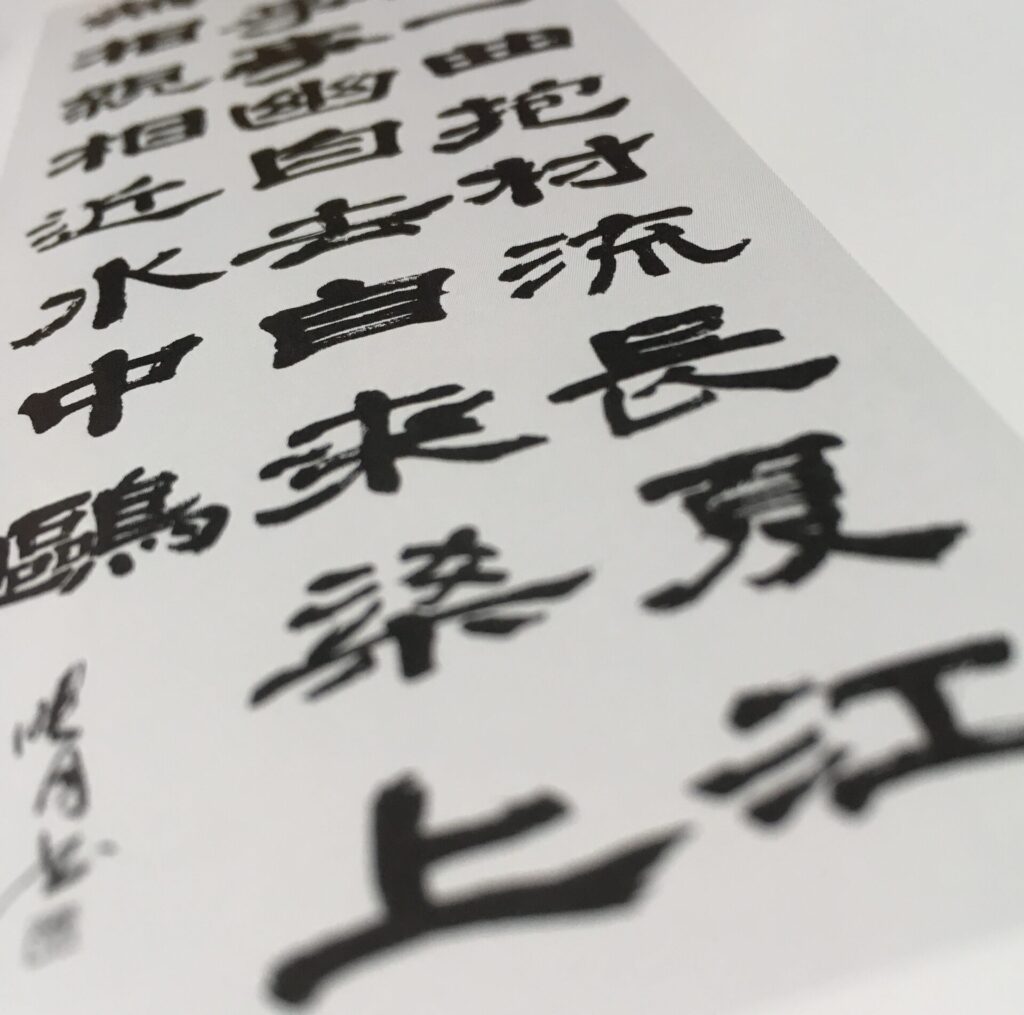 一曲抱村流長夏江
事事幽自去自来梁上
燕相親相近水中鷗